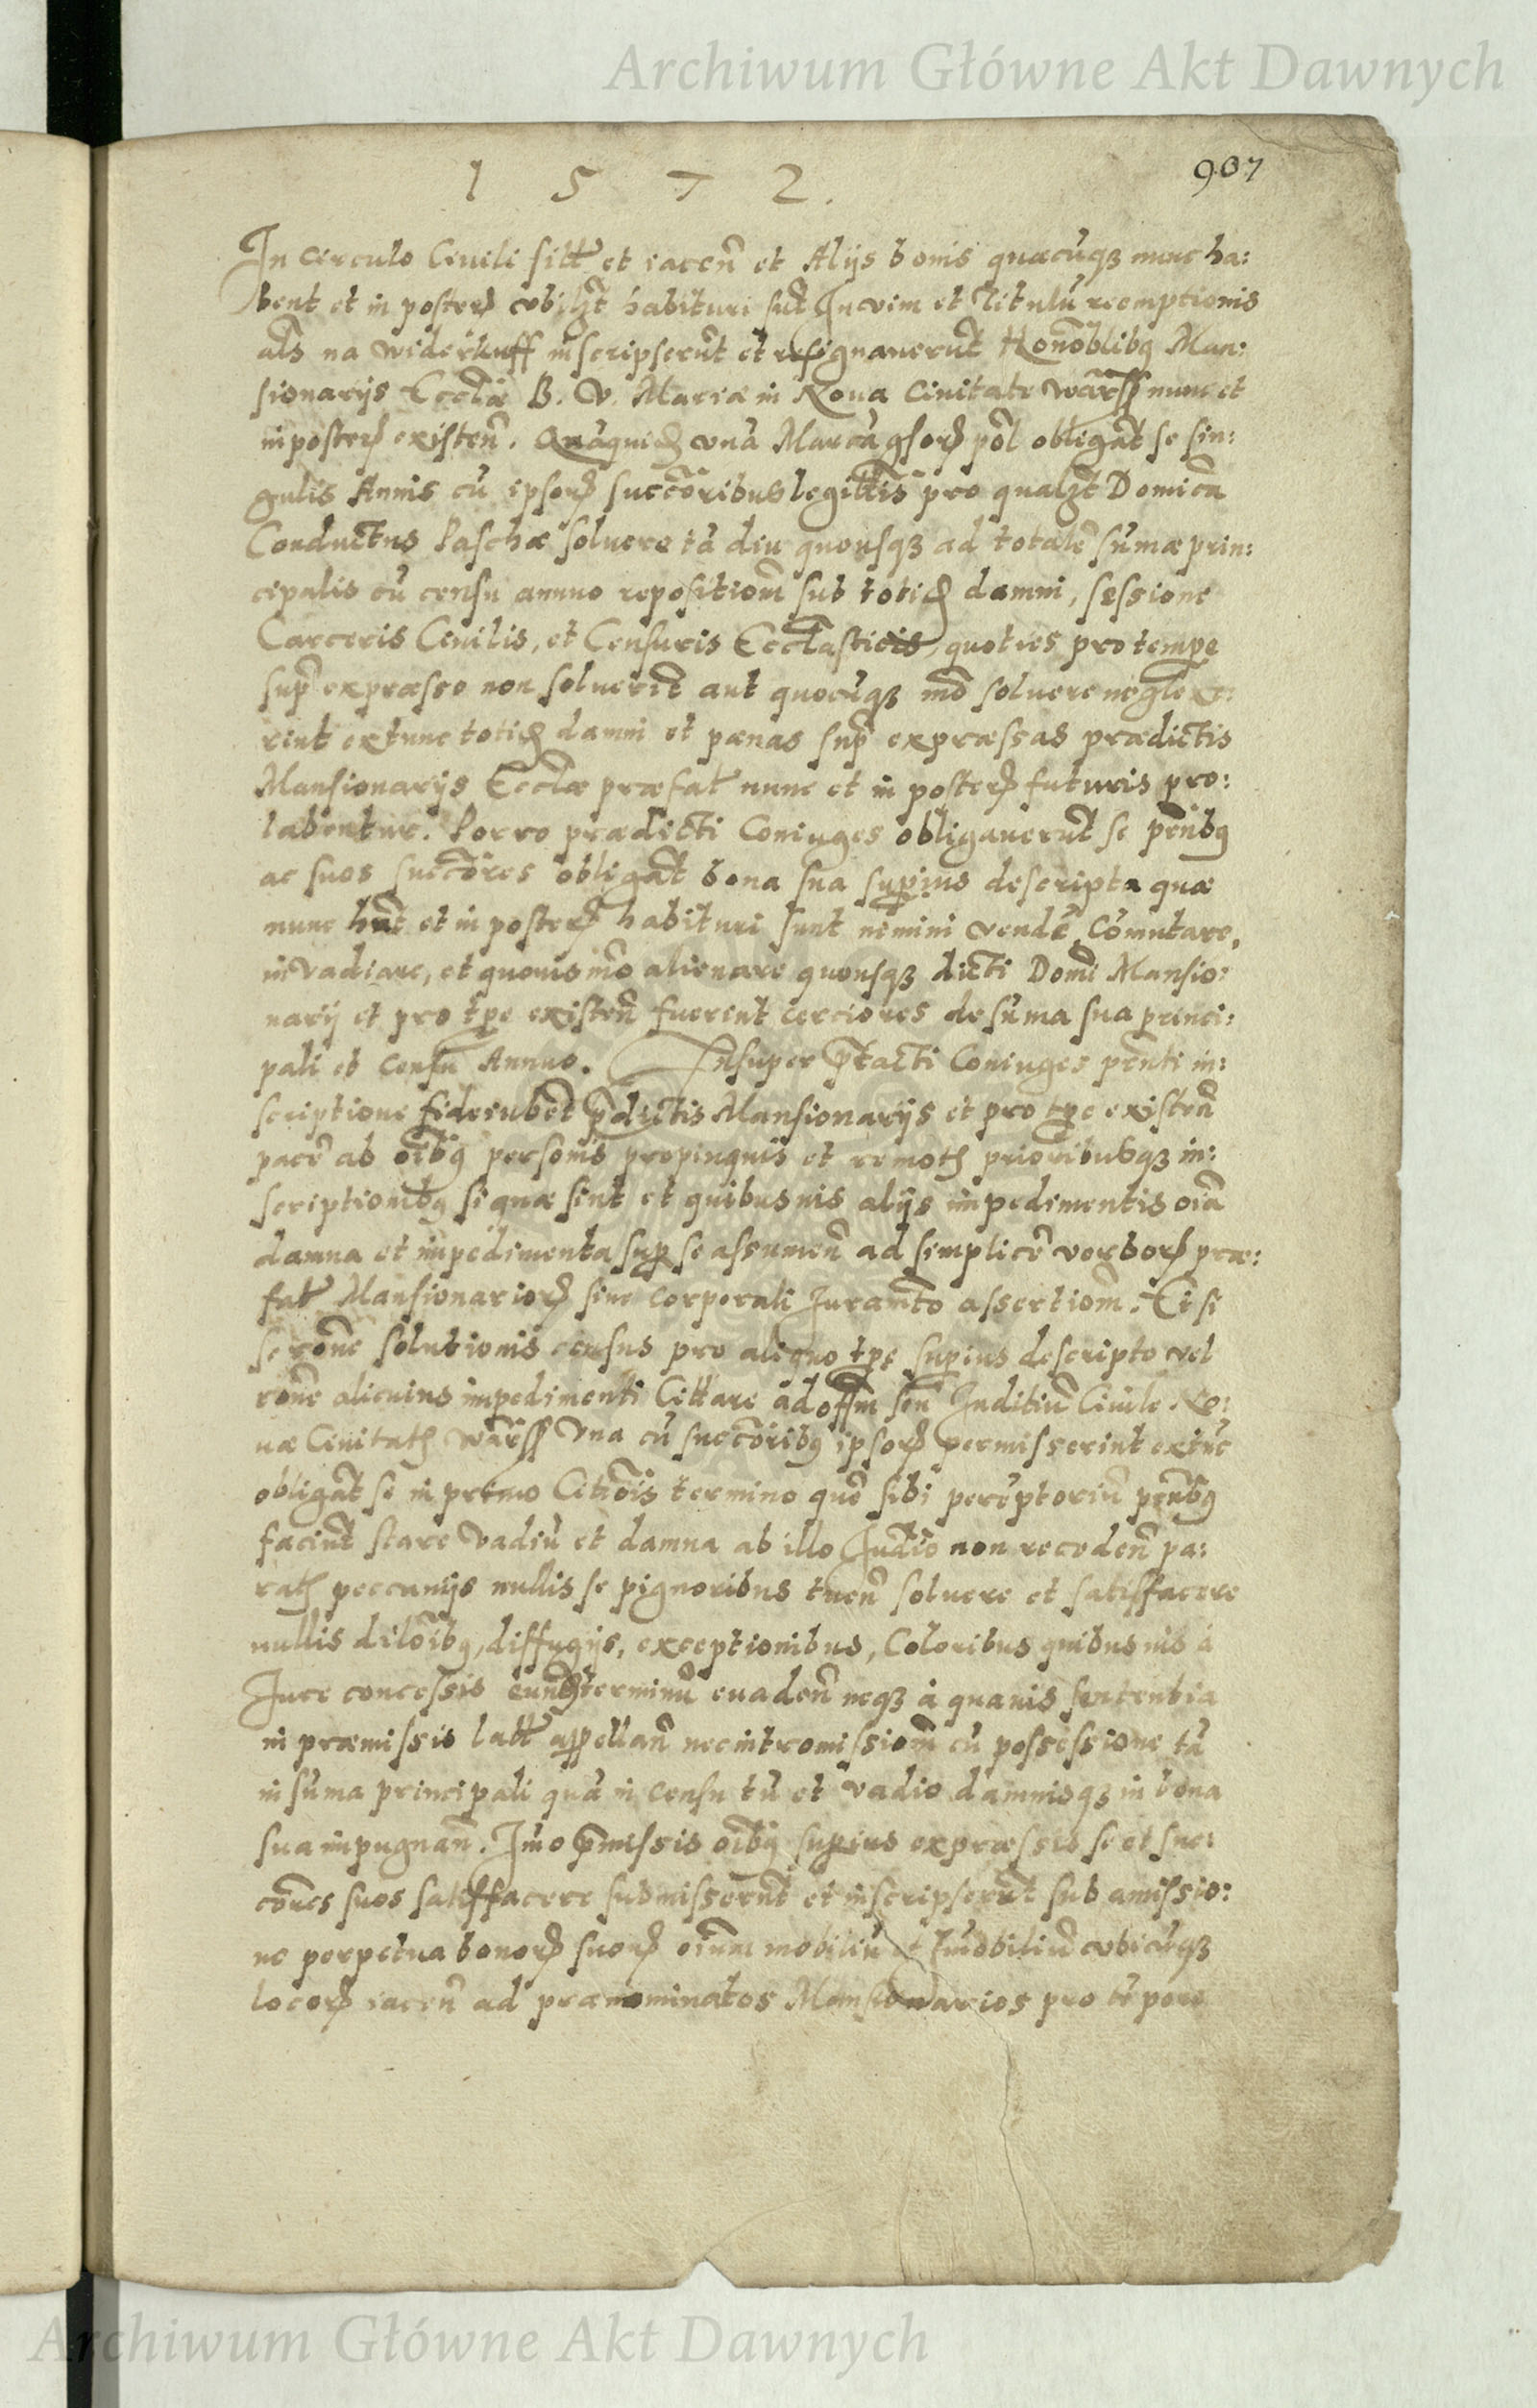 Archiwum Główne Akt Dawnych
1 5 7 2.
907
In circulo Ciuili sitt̃ et iaceñ et Alijs bonis quæcũqȝ nunc ha:
bent et in posterꝝ vbilȝt habituri sũt In vim et Titulũ reemptionis
als̃ na widerkuff inscripserũt et resignauerũt Honoblibꝯ Man:
sionarijs Eccliæ B. V. Mariæ in Noua Ciuitate Warss̃ nunc et
in posterꝝ existeñ. Quãquidẽ vnã Marcã gsorꝝ pol̃ obligãt se sin:
gulis Annis cũ ipsorꝝ succõribus legittĩs pro qualȝt Domĩca
Conductus Paschæ soluere tã diu quousqȝ ad totalẽ sũmæ prin:
cipalis cũ censu annuo repositiom̃ sub totidẽ damni, sessione
Carceris Ciuilis, et Censuris Eccl̃asticis, quoties pro tempe
sup̃ expræsso non soluerĩt aut quocũqȝ mõ soluere neglexe:
rint extunc totidẽ damni et pænas sup̃ expræssas prædictis
Mansionarijs Eccl̃æ præfat̃ nunc et in posterꝝ futuris pro:
labentur. Porro prædicti Coniuges obligauerũt se pñtibꝯ
ac suos succõres obligãt bona sua superius descripta quæ
nunc hñt et in posterꝝ habituri sunt nemini vendẽ, Cõmutare,
inuadiare, et quouismõ alienare quousqȝ dicti Domĩ Mansio:
narij et pro tpe existeñ fuerint cerciores de sũma sua princi:
pali et Censu Annuo. Insuper p̃tacti Coniuges pñti in:
scriptione fideiubẽt p̃dictis Mansionarijs et pro tpe existeñ
pacẽ ab oĩbꝯ personis propinquis et remotis prioribusqȝ in:
scriptionibꝯ si quæ sint et quibusuis alijs impedimentis oĩa
damna et impedimenta super se assumeñ ad simplicẽ verborꝝ præ:
fat̃ Mansionariorꝝ sine corporali Iuramẽto assertiom̃. Et si
se rõne solutionis census pro aliquo tpe superius descripto vel
rõne alicuius impedimenti Cittare ad offm̃ seu Iuditiũ Ciuile No:
uæ Ciuitatis Warss̃ Vna cũ succõribꝯ ipsorꝝ permisserint extũc
obligãt se in primo Citõis termino quẽ sibi perẽptoriũ pñtibꝯ
faciũt stare Vadiũ et damna ab illo Iudĩo non recedeñ pa:
ratis peccunijs nullis se pignoribus tueñ soluere et satisffacere
nullis dilõibꝯ, diffugijs, exceptionibus, Coloribus quibusuis á
Iure concessis eundẽ terminũ euadeñ neqȝ á quauis sententia
in præmissis latt̃ appellañ nec intromissiom̃ cũ possessione tã
in sũma principali quã in Censu tũ et vadio damnisqȝ in bona
sua impugnañ. Imo p̃missis oĩbꝯ superius expræssis se et suc:
cõres suos satisffacere submisserũt et inscripserũt sub amissio:
ne perpetua bonorꝝ suorꝝ oĩum mobiliũ et Imobiliũ vbicũqȝ
locorꝝ iaceñ ad prænominatos Mansionarios pro tẽpore
Archiwum Główne Akt Dawnych